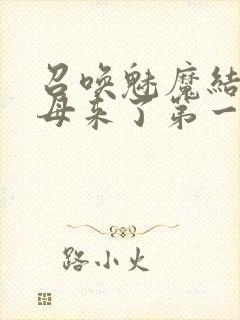 召唤魅魔结
母来了第一
路小火